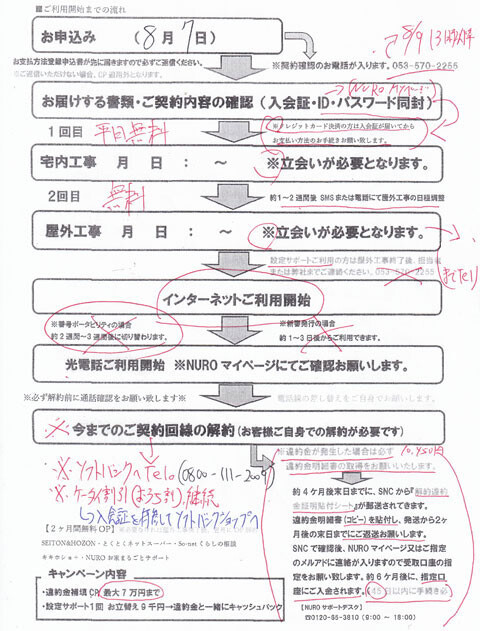 ■ご利用開始までの流れ
お申込み （ 8 月 7 日）
8/9 13時以降
お支払方法登録申込書が先に届きますので必ずご返信ください。
※ご返信いただけない場合、CP適用外となります。
※契約確認のお電話が入ります。053-570-2255
(NURO マイページ
お届けする書類・ご契約内容の確認（入会証・ID・パスワード同封）
1回目 平日無料
※クレジットカード決済の方は入会証が届いてから
お支払い方法のお手続きお願い致します。
宅内工事 月 日： ～ ※立会いが必要となります。
2回目 無料
約1～2週間後 SMSまたは電話にて屋外工事の日程調整
屋外工事 月 日： ～ ※立会いが必要となります。
設定サポートご利用の方は屋外工事終了後、担当者
または弊社までご連絡ください。053-570-2255
までTel
インターネットご利用開始
※番号ポータビリティの場合
約2週間～3週間後に切り替わります。
※新番発行の場合
約1～3日後からご利用できます。
光電話ご利用開始 ※NUROマイページにてご確認お願いします。
※必ず解約前に通話確認をお願い致します※
電話線の差し替えをご自身でお願いします。
※今までのご契約回線の解約(お客様ご自身での解約が必要です)
※違約金が発生した場合は必ず 10,450円
違約金明細書の取得をお願いいたします。
※ソフトバンクへTel。(0800-111-2009)
※ケータイ割引(おうち割)継続
↳入会証を持参してソフトバンクショップへ
約4ケ月後末日までに、SNCから『解約違約
金証明貼付シート』が郵送されてきます。
違約金明細書(コピー)を貼付し、発送から2ヶ
月後の末日までにご返送お願します。
SNCで確認後、NUROマイページ又はご指定
のメルアドに連絡が入りますので受取口座の指
定をお願い致します。約6ケ月後に、指定口
座にご入金されます。(45日以内に手続き必
【2ヶ月間無料OP】
SEITON&HOZON・とくとくネットスーパー・So-netくらしの相談
キキホショ・NUROお家まるごとサポート
キャンペーン内容
・違約金補填CP 最大7万円まで
・設定サポート1回 お立替え9千円→違約金と一緒にキャッシュバック
【NUROサポートデスク】
☎0120-65-3810 (9:00 ～ 18:00)